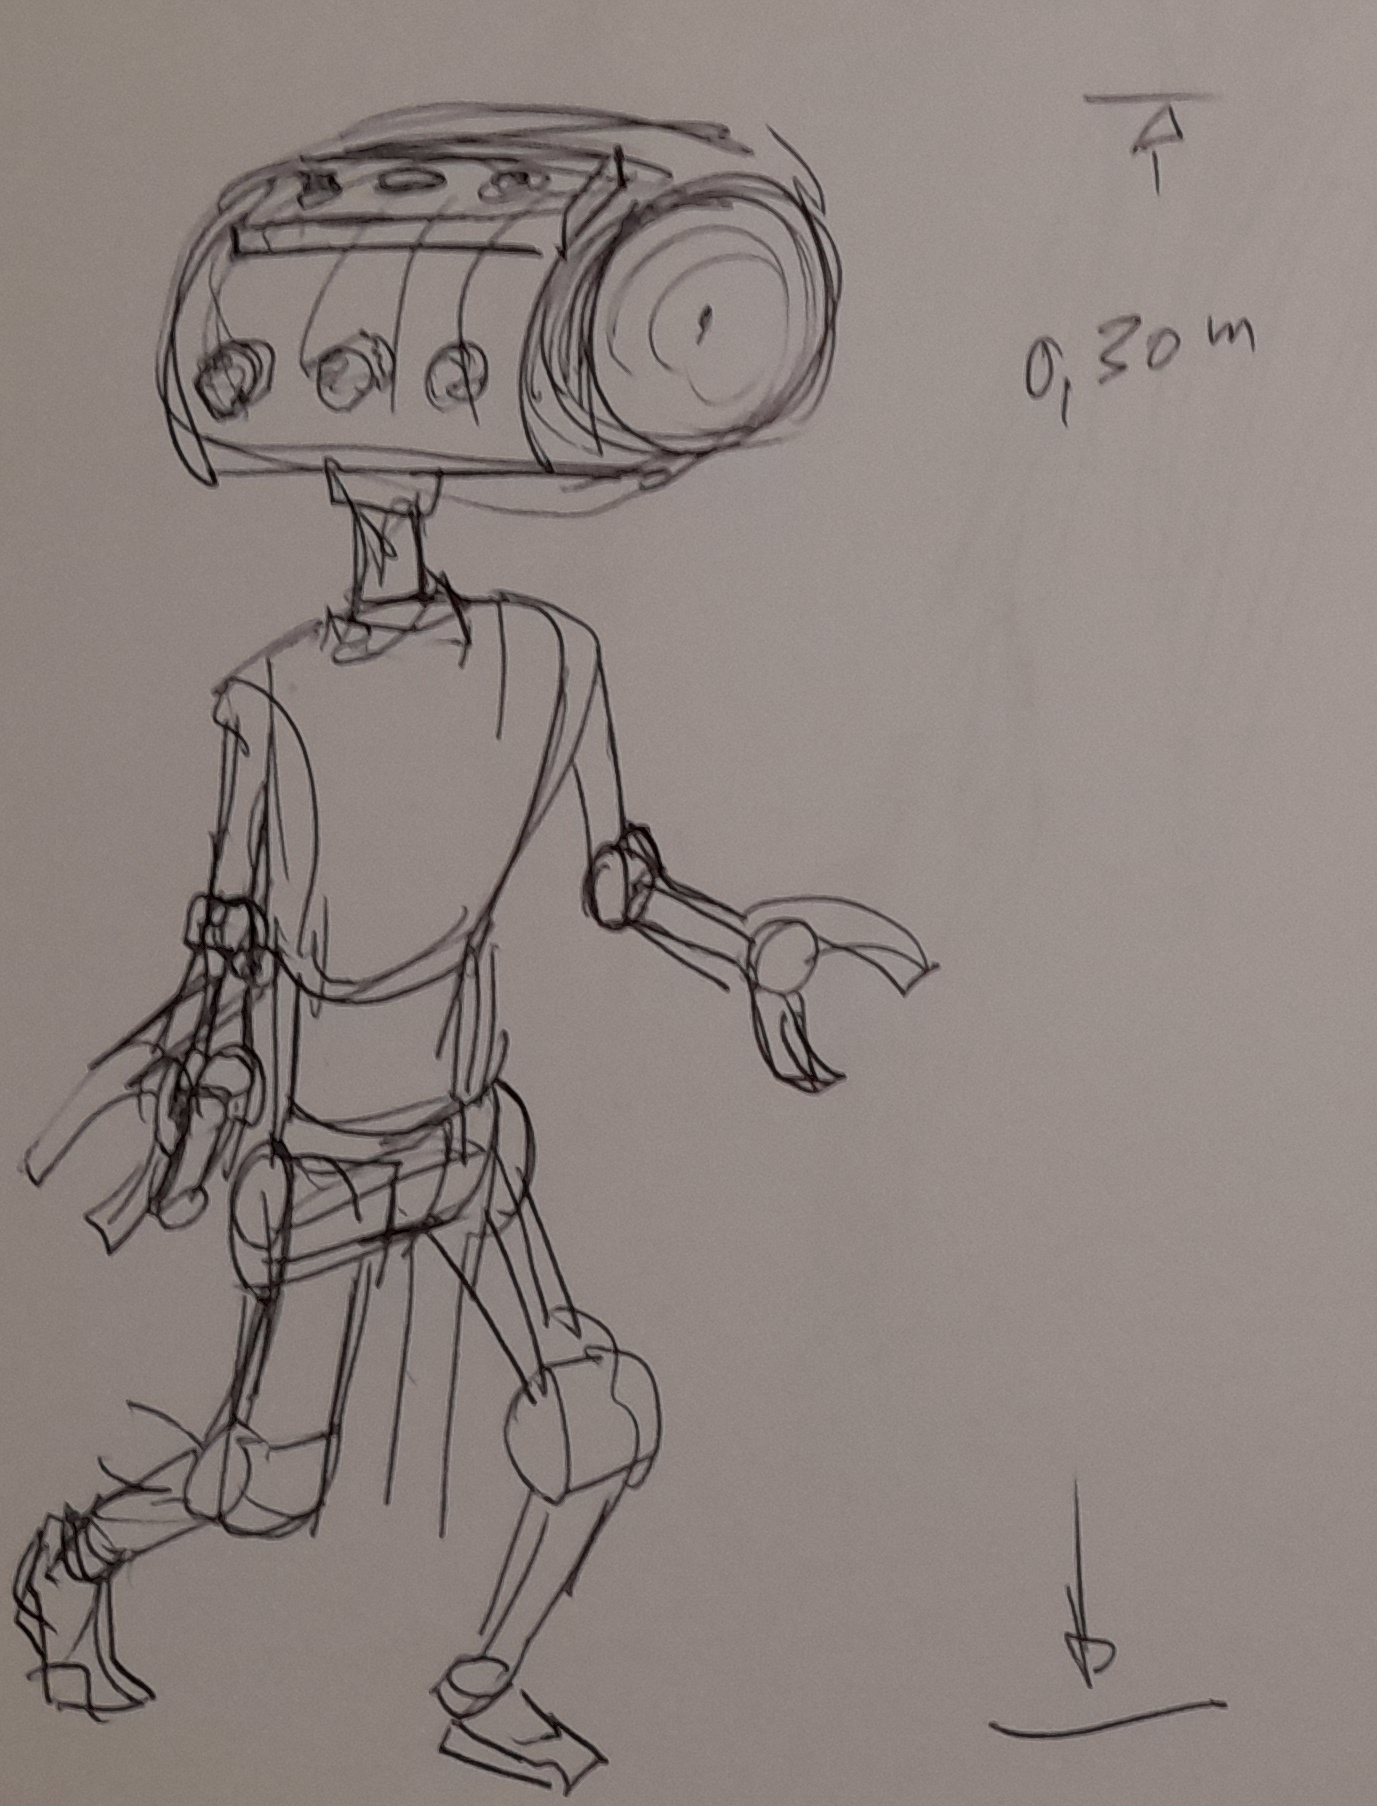 0,30 m